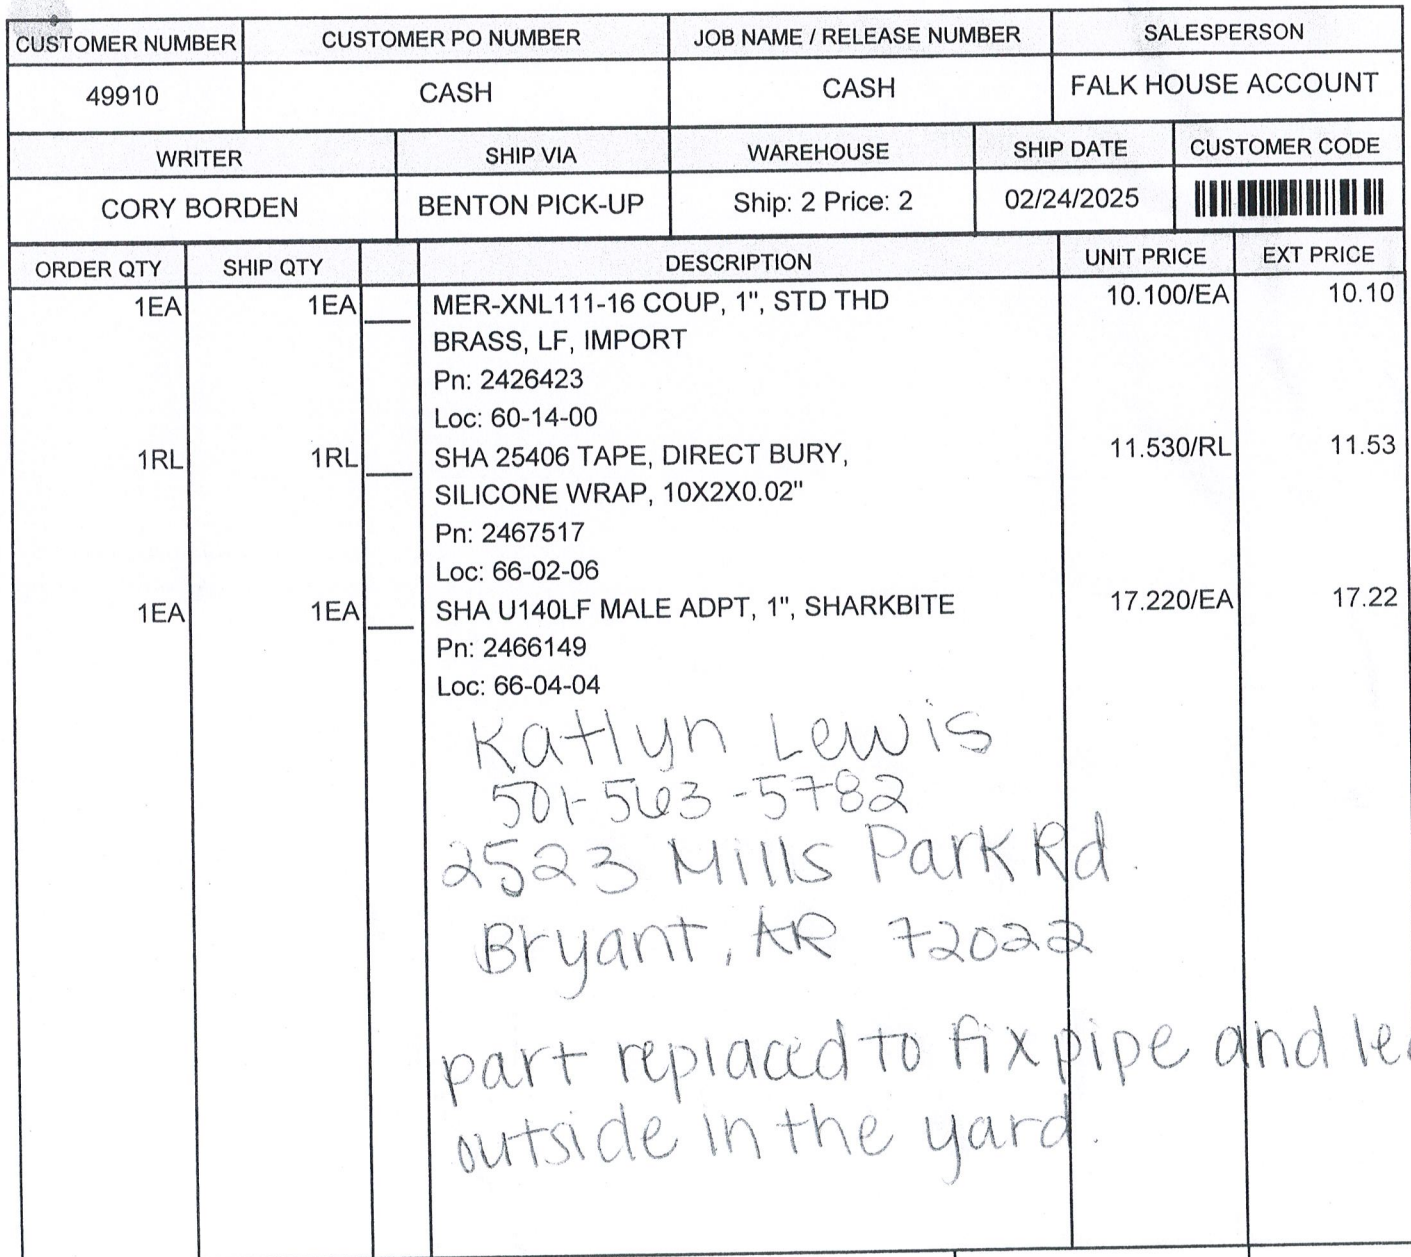 CUSTOMER NUMBER CUSTOMER PO NUMBER JOB NAME / RELEASE NUMBER SALESPERSON
49910 CASH CASH FALK HOUSE ACCOUNT
WRITER SHIP VIA WAREHOUSE SHIP DATE CUSTOMER CODE
CORY BORDEN BENTON PICK-UP Ship: 2 Price: 2 02/24/2025
ORDER QTY SHIP QTY DESCRIPTION UNIT PRICE EXT PRICE
1EA 1EA MER-XNL111-16 COUP, 1", STD THD 10.100/EA 10.10
BRASS, LF, IMPORT
Pn: 2426423
Loc: 60-14-00
1RL 1RL SHA 25406 TAPE, DIRECT BURY, 11.530/RL 11.53
SILICONE WRAP, 10X2X0.02"
Pn: 2467517
Loc: 66-02-06
1EA 1EA SHA U140LF MALE ADPT, 1", SHARKBITE 17.220/EA 17.22
Pn: 2466149
Loc: 66-04-04
Katlyn Lewis
501-563-5782
2523 Mills Park Rd.
Bryant, AR 72022
part replaced to fix pipe and
outside in the yard.